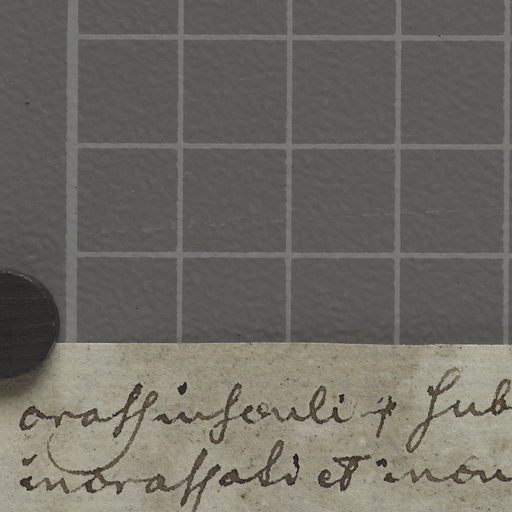 crassiusculi + sub
incrassati et incu